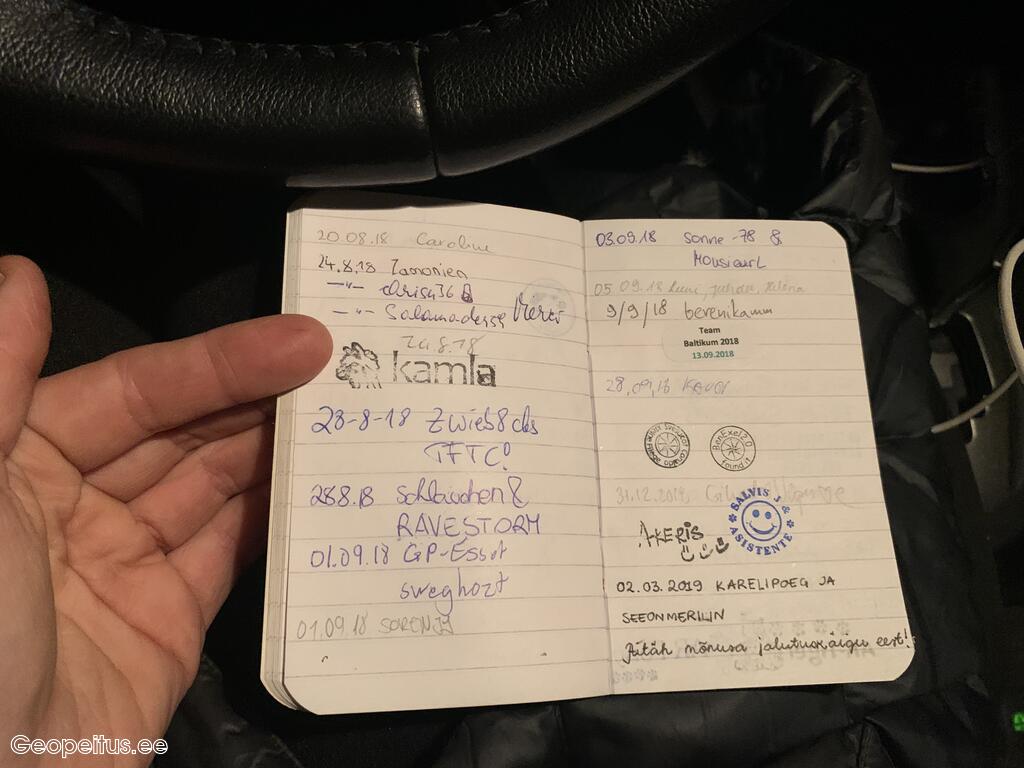 20.08.18 Caroline
24.8.18 Zamonien
—"— chrisu36
—"— Salamadessa
Merti
28.8.18
kamla
28-8-18 Zwieb8cks
TFTC!
28.8.18 schläuchen &
RAVESTORM
01.09.18 GP-Essot
sweghozt
01.09.18 SORENJS
03.09.18 Sonne-78 &
MousieurL
05.09.18 juhan, Helena
9/9/18 berenikamm
Team
Baltikum 2018
13.09.2018
28.09.18
BenExef2.0
Found it
31.12.2018
SALVIS J &
ASISTENTE
AKERIS
02.03.2019 KARELIPOEG JA
SEEONMERILIN
Aitäh mõnusa jalutuskäigu eest!
Geopeitus.ee